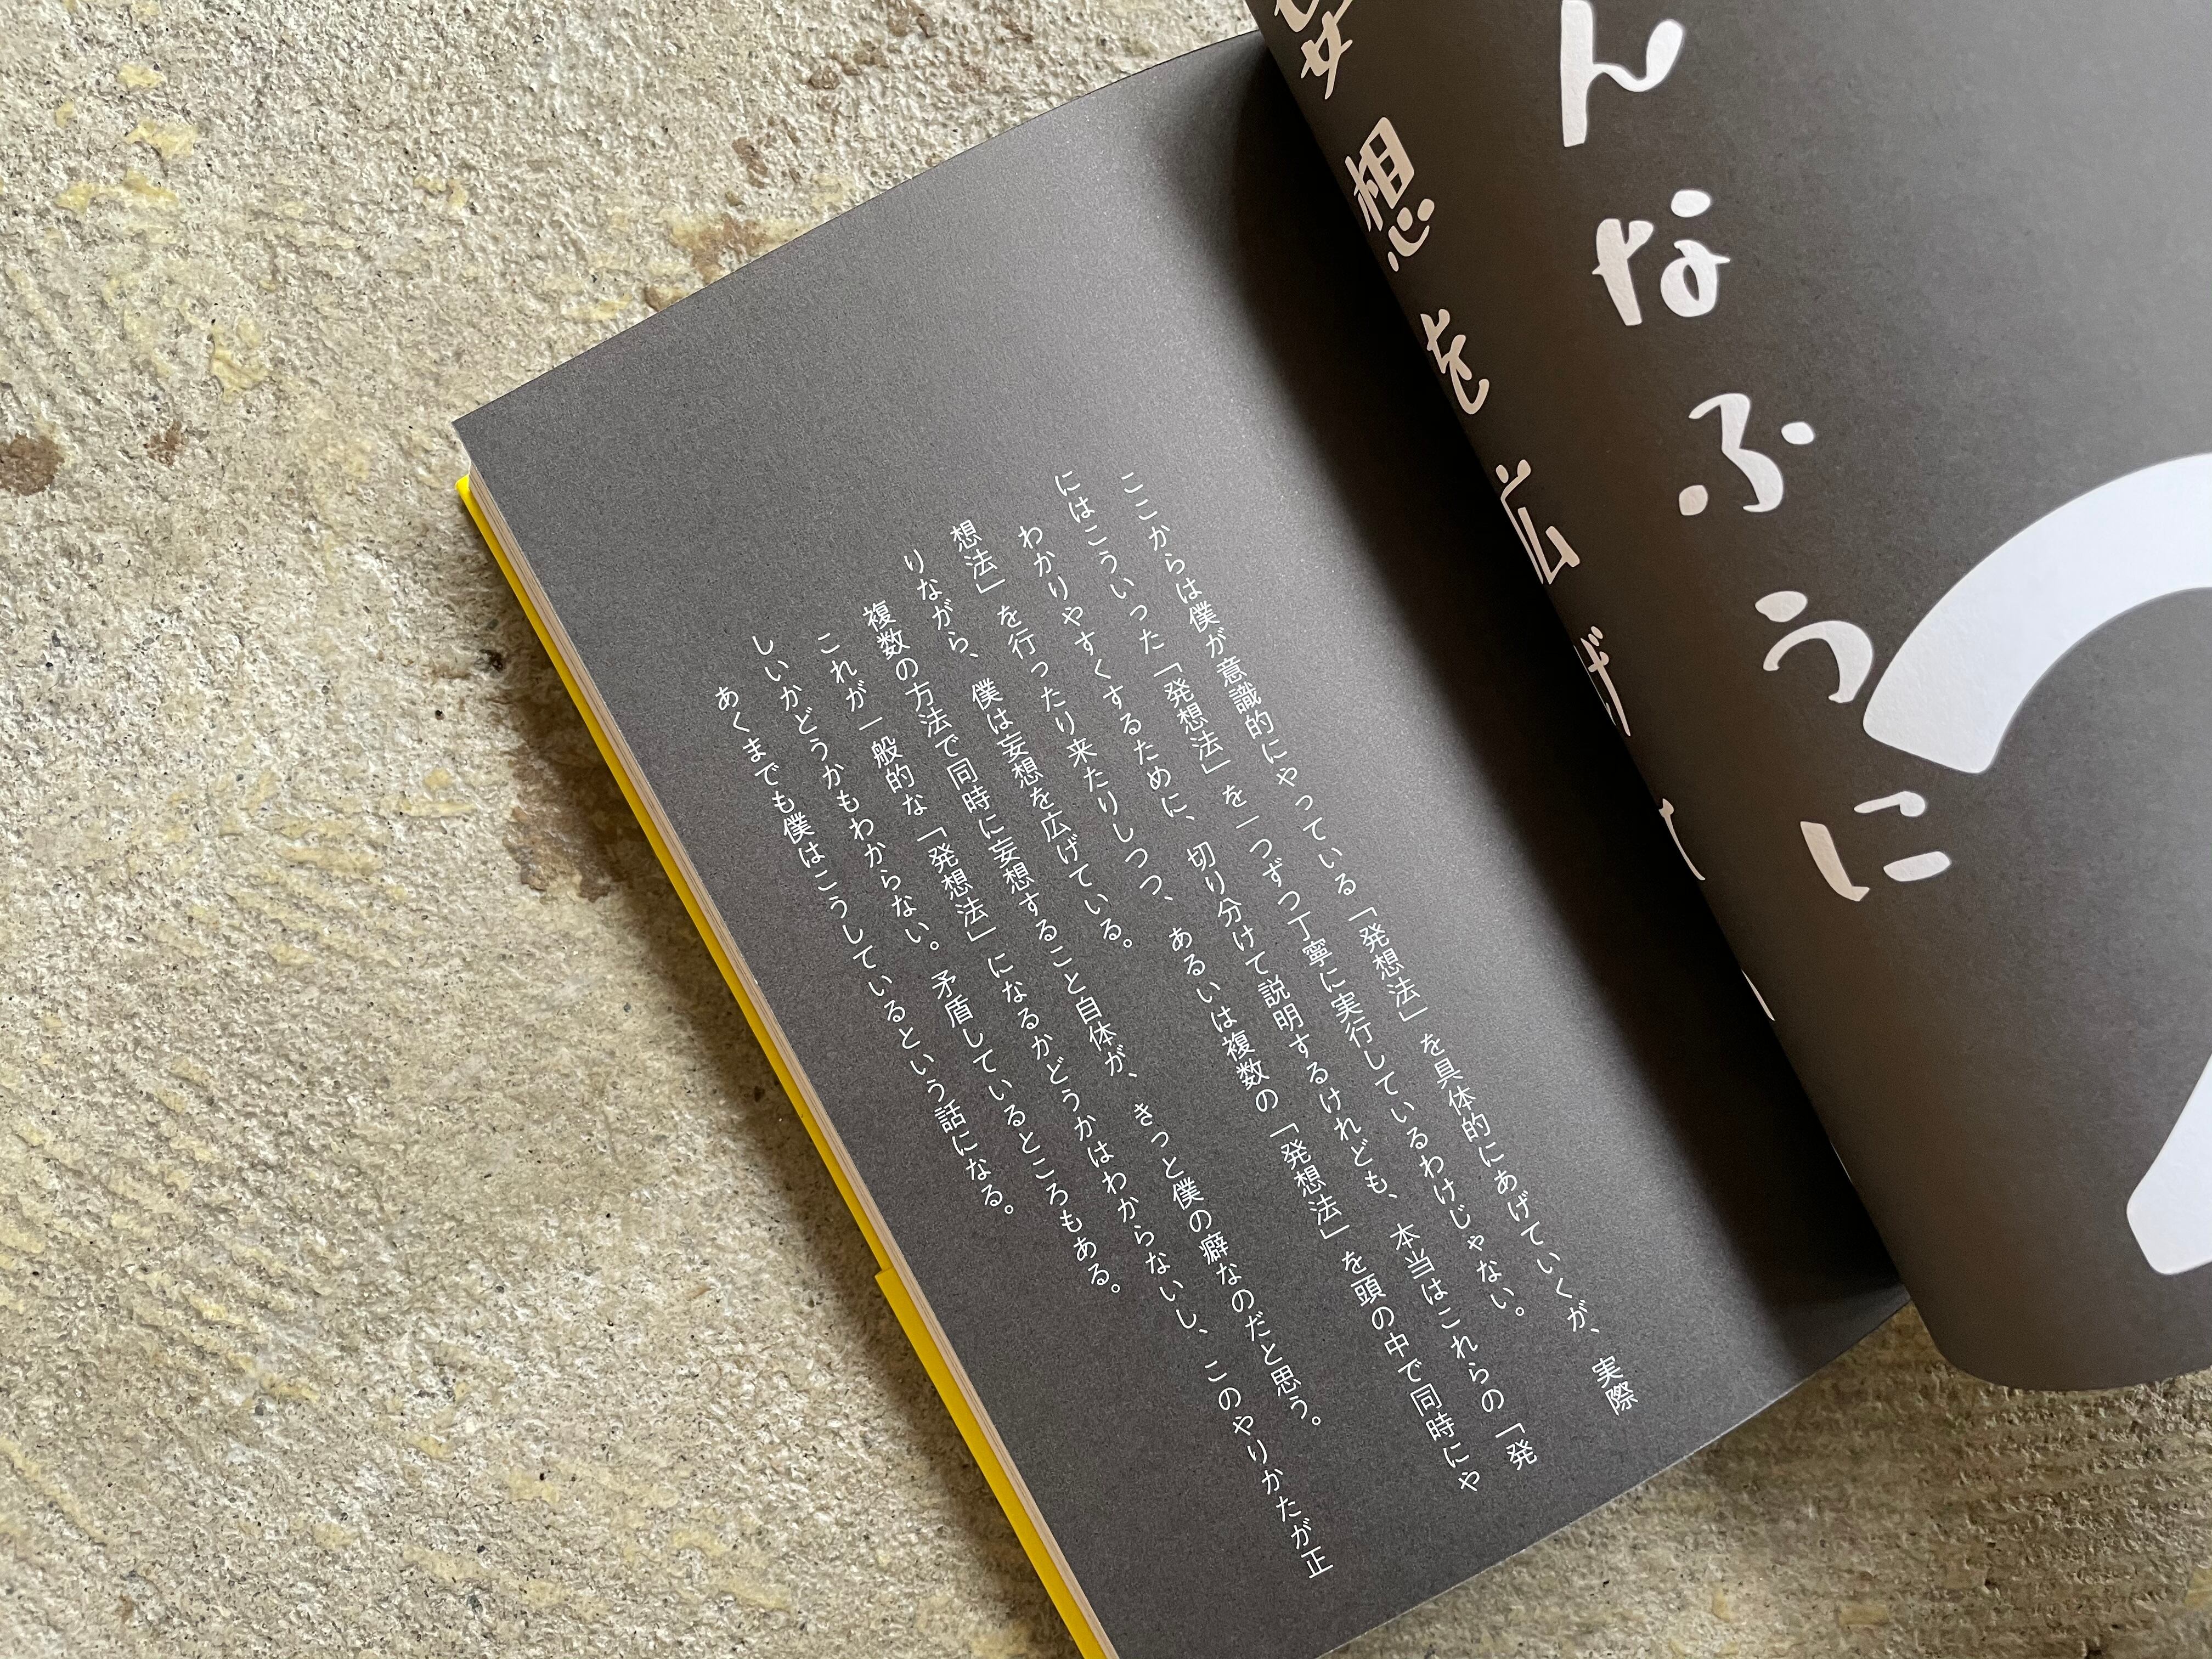 んなふうに
妄想を広げ
ここからは僕が意識的にやっている「発想法」を具体的にあげていくが、実際
にはこういった「発想法」を一つずつ丁寧に実行しているわけじゃない。
わかりやすくするために、切り分けて説明するけれども、本当はこれらの「発
想法」を行ったり来たりしつつ、あるいは複数の「発想法」を頭の中で同時にや
りながら、僕は妄想を広げている。
複数の方法で同時に妄想すること自体が、きっと僕の癖なのだと思う。
これが一般的な「発想法」になるかどうかはわからないし、このやりかたが正
しいかどうかもわからない。矛盾しているところもある。
あくまでも僕はこうしているという話になる。